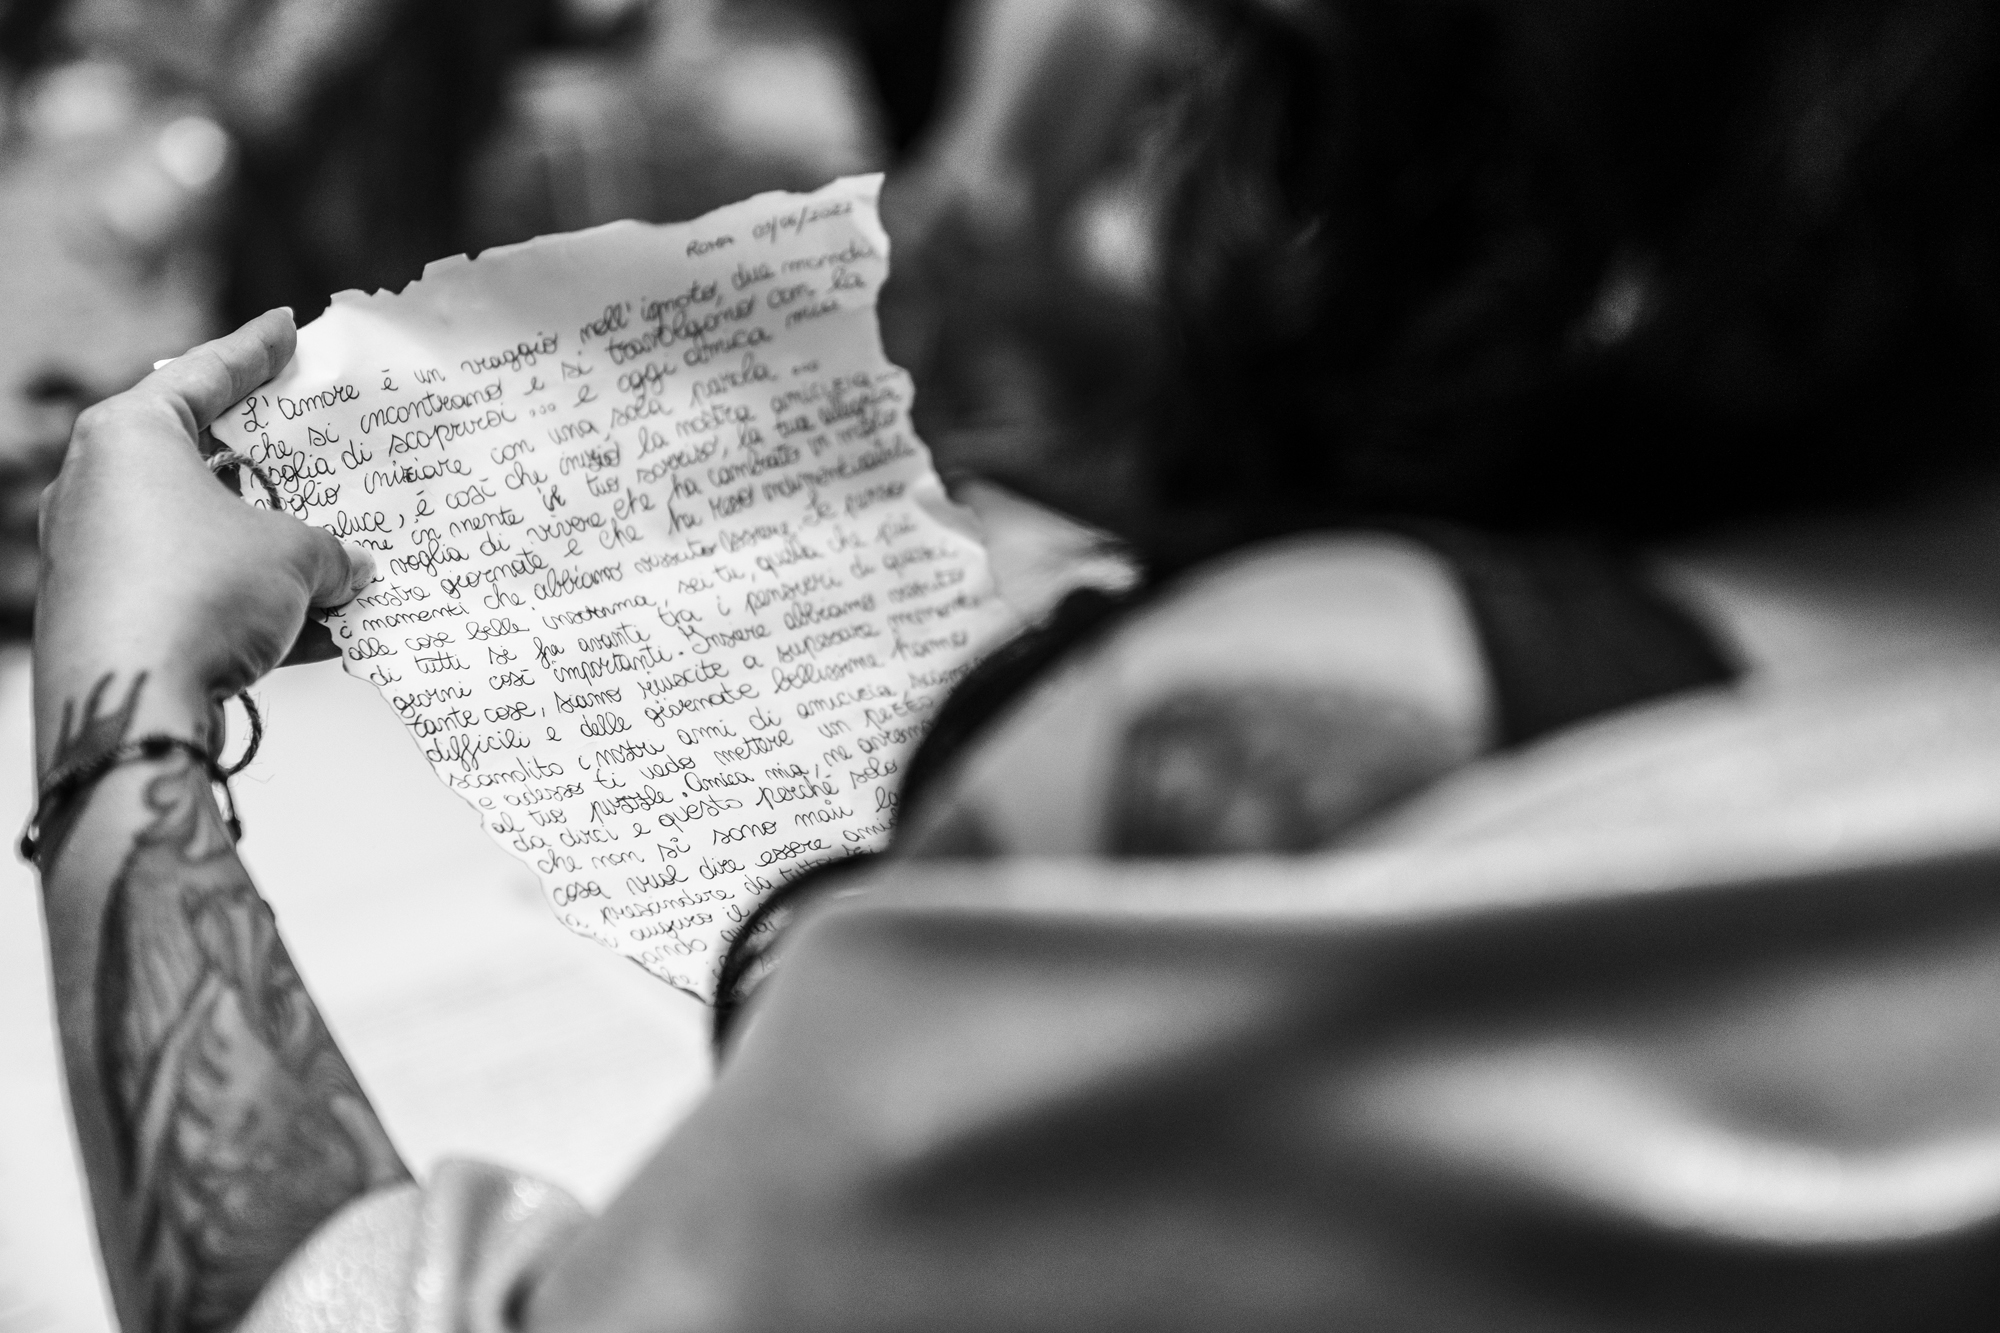 Roma 03/06/2022
L'amore è un viaggio nell'ignoto, due mondi
che si incontrano e si travolgono con la
voglia di scoprirsi ... e oggi amica mia
voglio iniziare con una sola parola ...
è così che iniziò la nostra amicizia
in mente il tuo sorriso, la tua allegria
voglia di vivere che ha cambiato in meglio
nostre giornate e che ha reso indimenticabili
i momenti che abbiamo vissuto Se penso
alle cose belle insomma, sei tu, quella che più
di tutti si fa avanti tra i pensieri di questi
giorni così importanti. Insieme abbiamo vissuto
tante cose, siamo riuscite a superare momenti
difficili e delle giornate bellissime hanno
scandito i nostri anni di amicizia,
e adesso ti vedo mettere un pezzo
al tuo puzzle. Amica mia, ne avremo
da dirci e questo perché solo
che non si sono mai la
cosa vuol dire essere
prescindere da tutto
auguro il